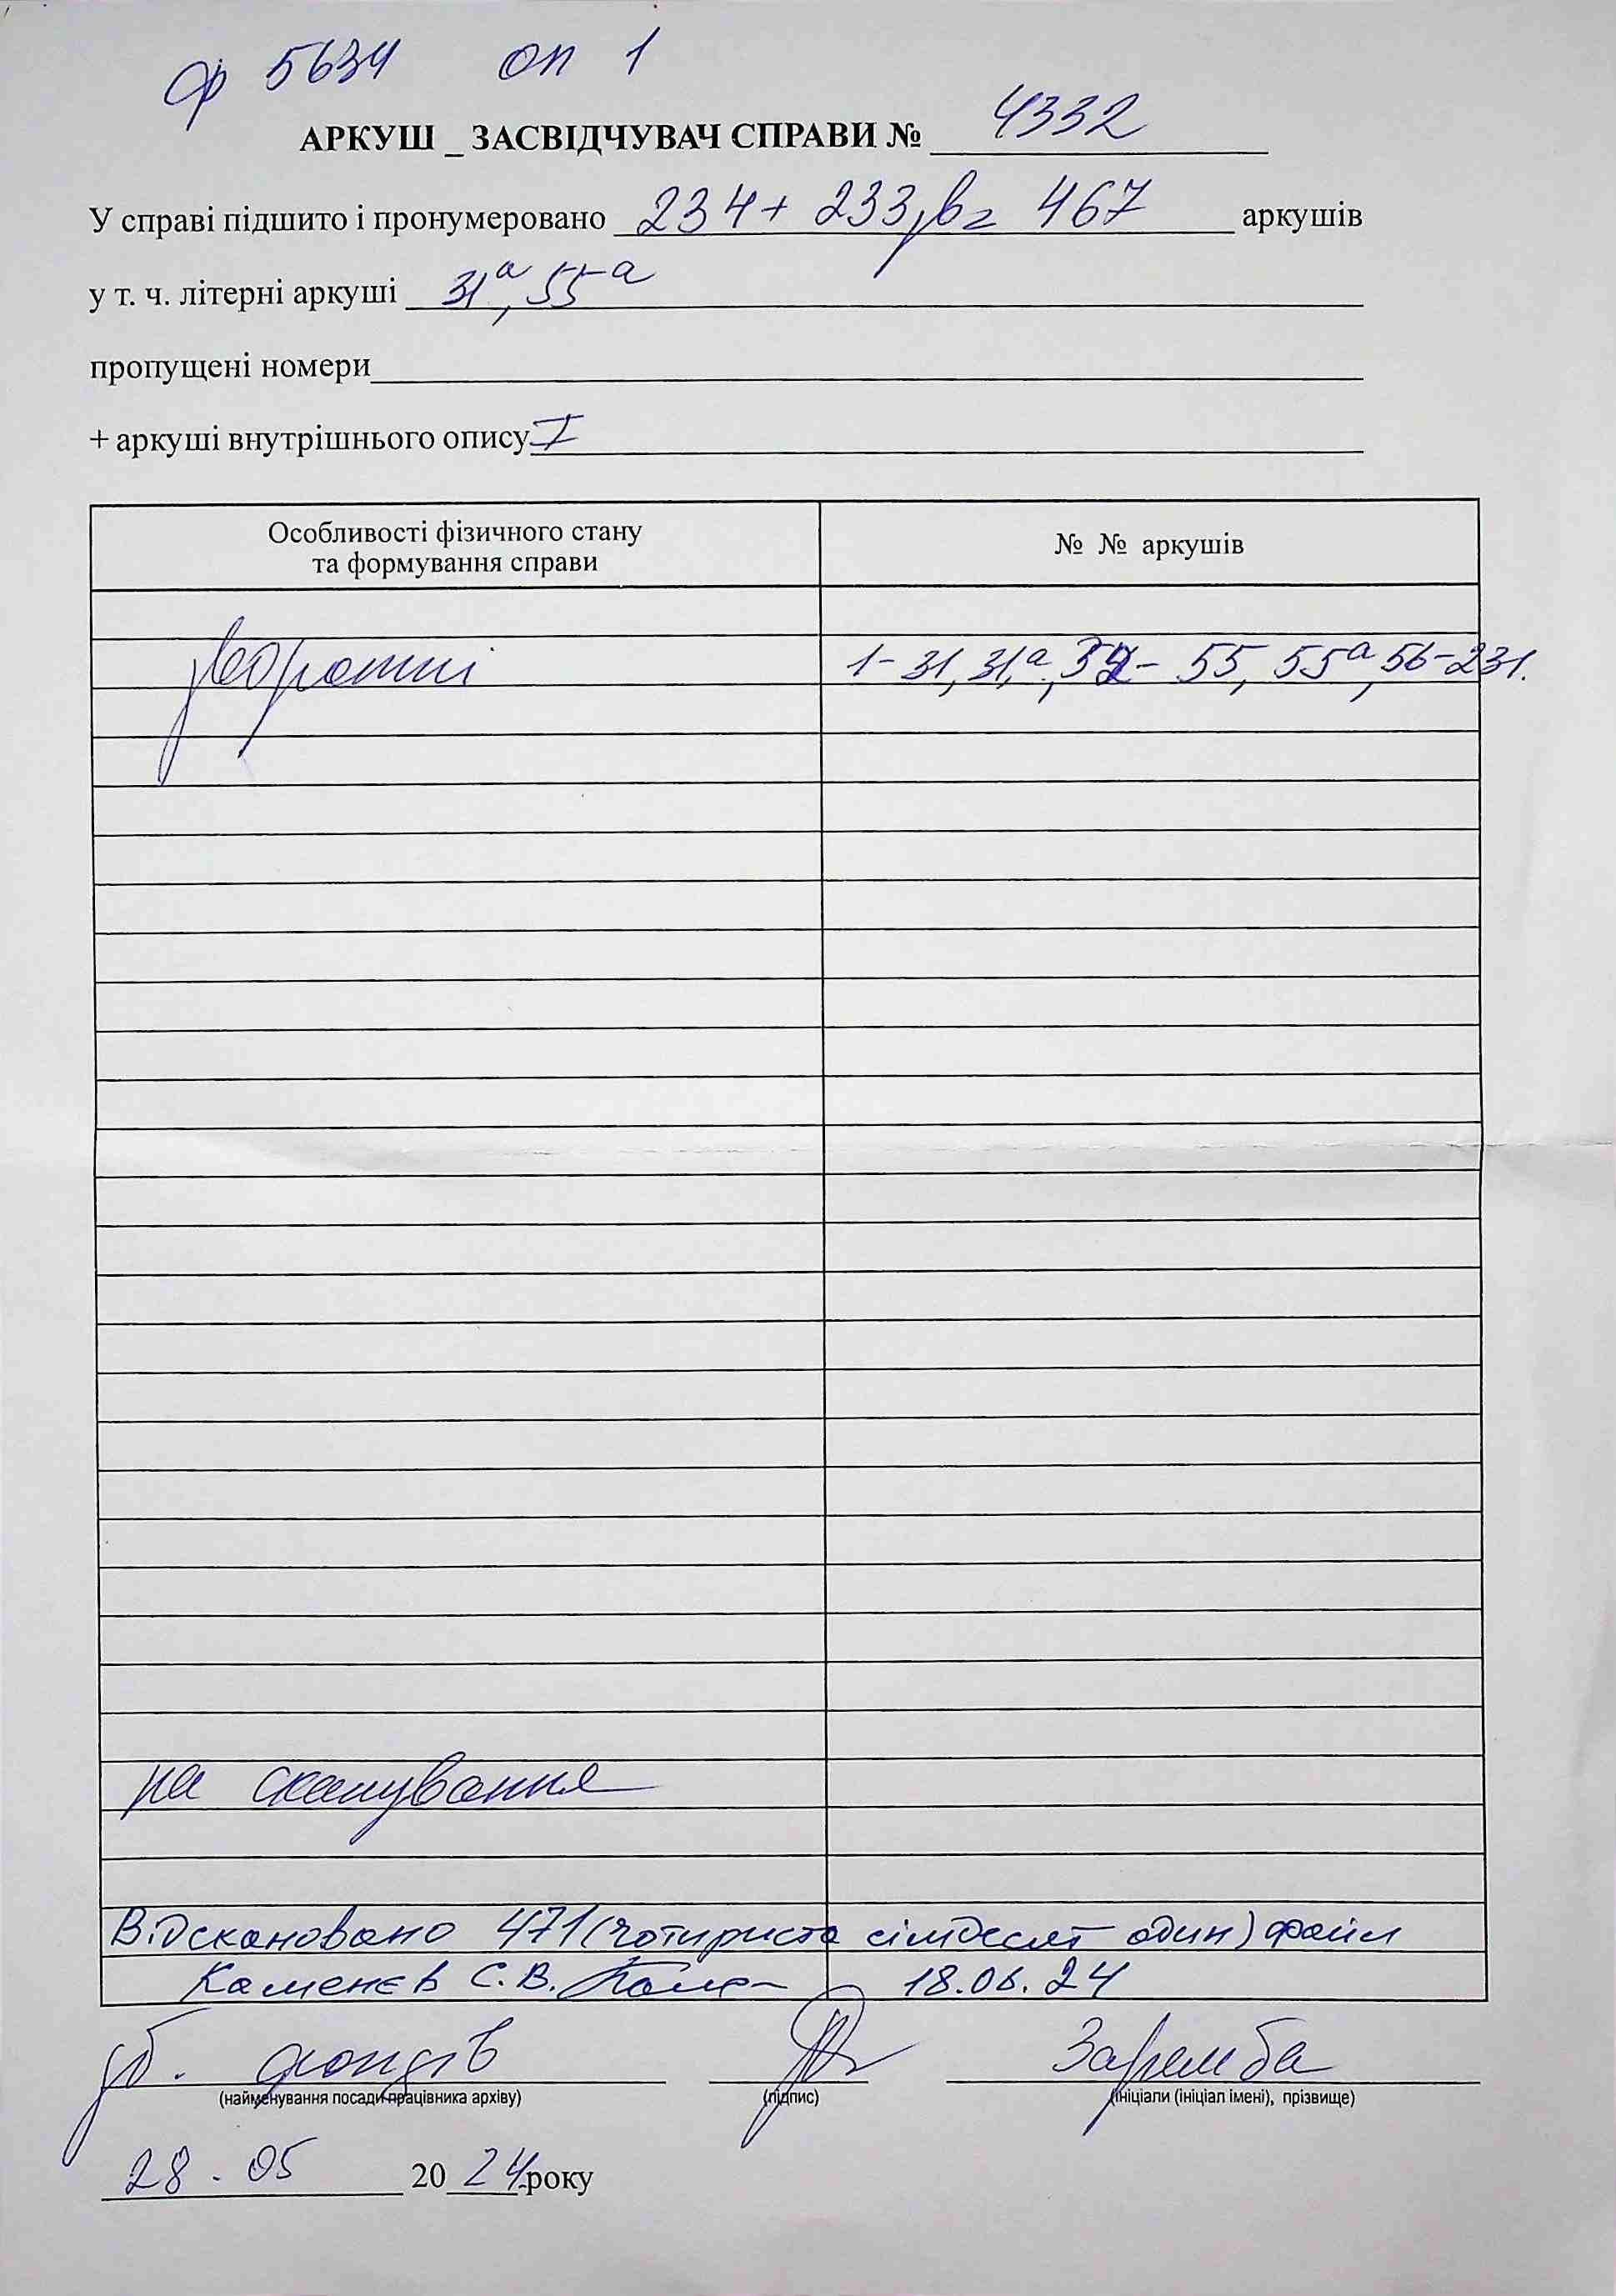 Ф 5634 оп 1
АРКУШ _ ЗАСВІДЧУВАЧ СПРАВИ № 4332
У справі підшито і пронумеровано 234 + 233зв = 467 аркушів
у т. ч. літерні аркуші 31а, 55а
пропущені номери
+ аркуші внутрішнього опису I
Особливості фізичного стану
та формування справи
№ № аркушів
зворотні 1-31, 31а, 32-55, 55а, 56-231.
на сканування
Відскановано 471 (чотириста сімдесят один) файл
Каменєв С.В. 18.06.24
фондів Заремба
(найменування посади працівника архіву) (підпис) (ініціали (ініціал імені), прізвище)
28.05 2024 року